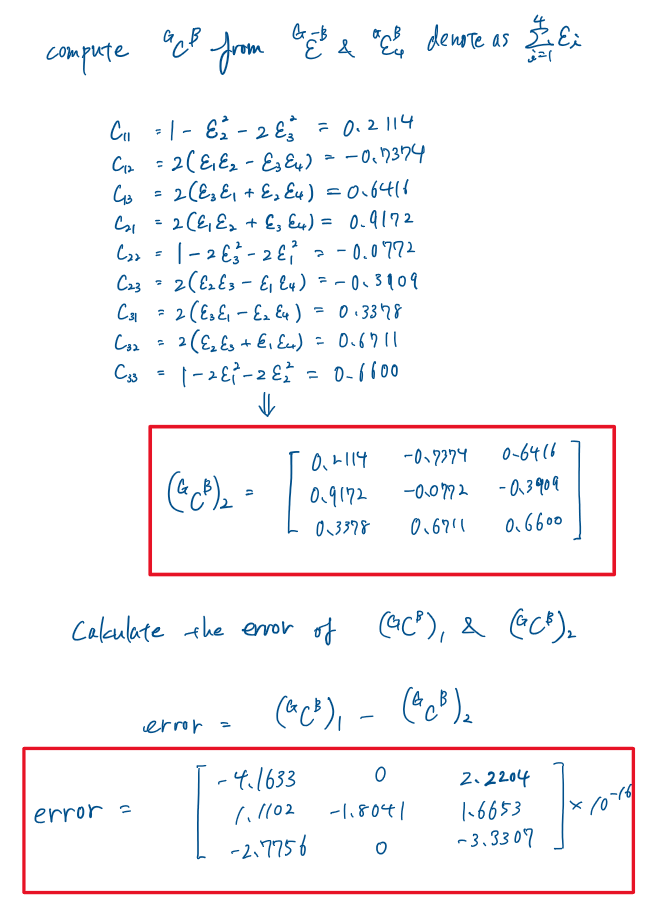 compute ᴳCᴮ from ᴳε̄ᴮ & ᴳε₄ᴮ denote as Σ⁴ᵢ₌₁ εᵢ
C₁₁ = 1 - ε₂² - 2ε₃² = 0.2114
C₁₂ = 2(ε₁ε₂ - ε₃ε₄) = -0.7374
C₁₃ = 2(ε₃ε₁ + ε₂ε₄) = 0.6416
C₂₁ = 2(ε₁ε₂ + ε₃ε₄) = 0.9172
C₂₂ = 1 - 2ε₃² - 2ε₁² = -0.0772
C₂₃ = 2(ε₂ε₃ - ε₁ε₄) = -0.3909
C₃₁ = 2(ε₃ε₁ - ε₂ε₄) = 0.3378
C₃₂ = 2(ε₂ε₃ + ε₁ε₄) = 0.6711
C₃₃ = 1 - 2ε₁² - 2ε₂² = 0.6600
⇓
(ᴳCᴮ)₂ = [ 0.2114 -0.7374 0.6416
0.9172 -0.0772 -0.3909
0.3378 0.6711 0.6600 ]
Calculate the error of (ᴳCᴮ)₁ & (ᴳCᴮ)₂
error = (ᴳCᴮ)₁ - (ᴳCᴮ)₂
error = [ -4.1633 0 2.2204
1.1102 -1.8041 1.6653
-2.7756 0 -3.3307 ] × 10⁻¹⁶